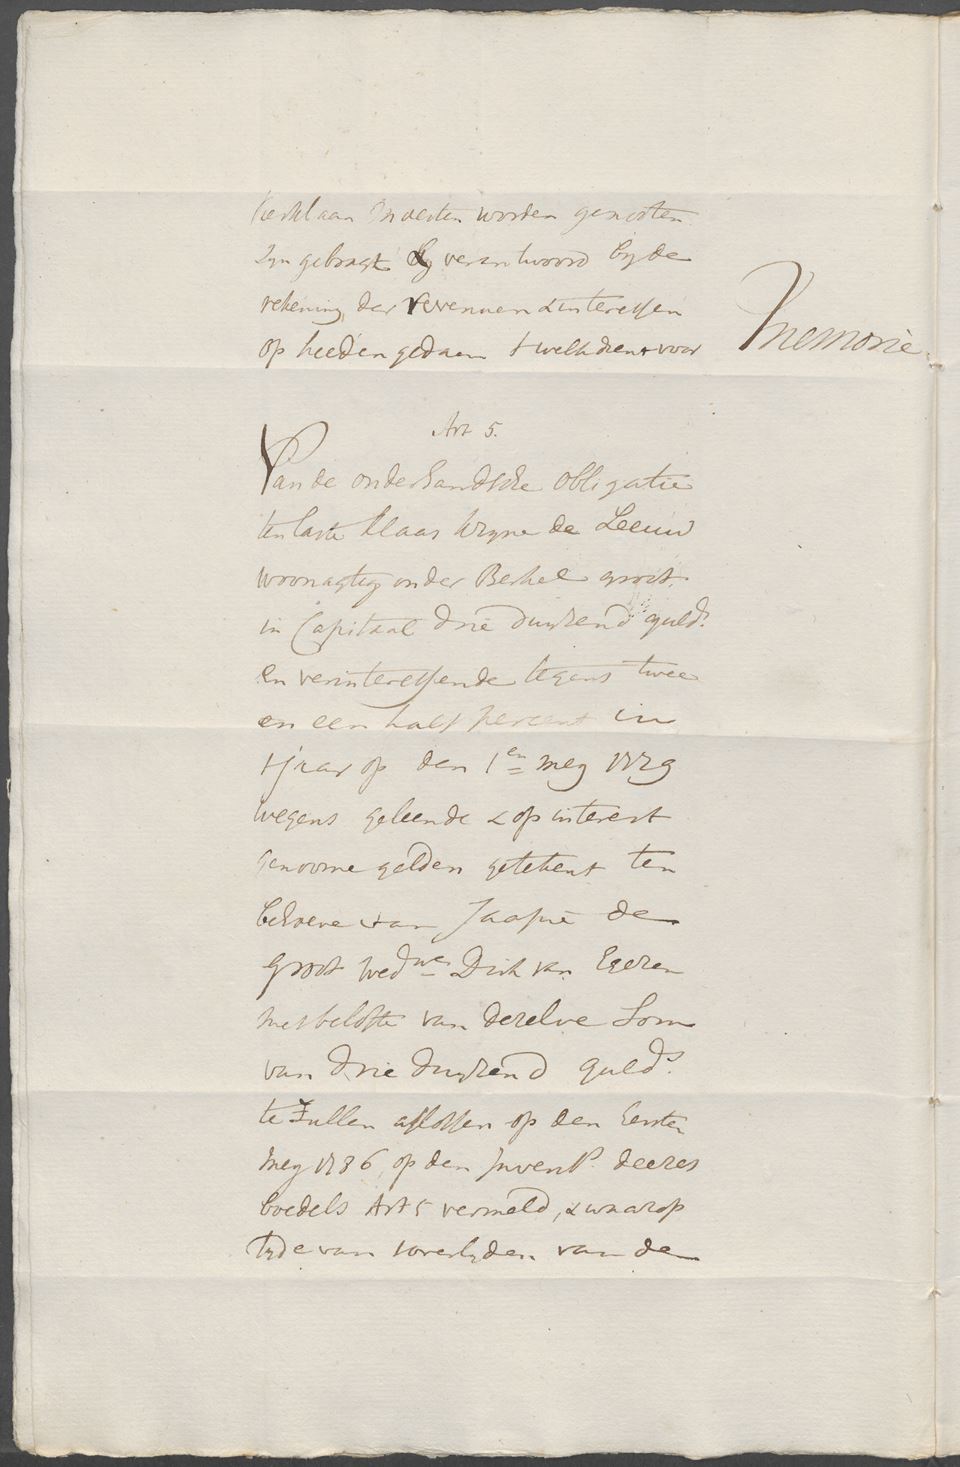 moesten worden genooten
zyn gebragt & verantwoord by de
rekening der revenuen & interessen
op heeden gedaan t welk dient voor
Memorie.
Art 5.
Van de onderhandsche obligatie
ten laste Klaas de Leeuw
woonagtig onder Berkel groot
in Capitaal drie duyzend guld.s
en verinteressende tegens twee
en een half percent in
t jaar op den 1en mey 1779
wegens geleende & op interest
genoome gelden getekent ten
behoeve van Jaapie de
Groot wedwe Dirk van Egeren
met belofte van dezelve Som
van drie duyzend guld.s
te zullen aflossen op den Eersten
mey 1786, op den Invent.s deezes
boedels Art 5 vermeld, & waarop
tyde van t overlyden van de